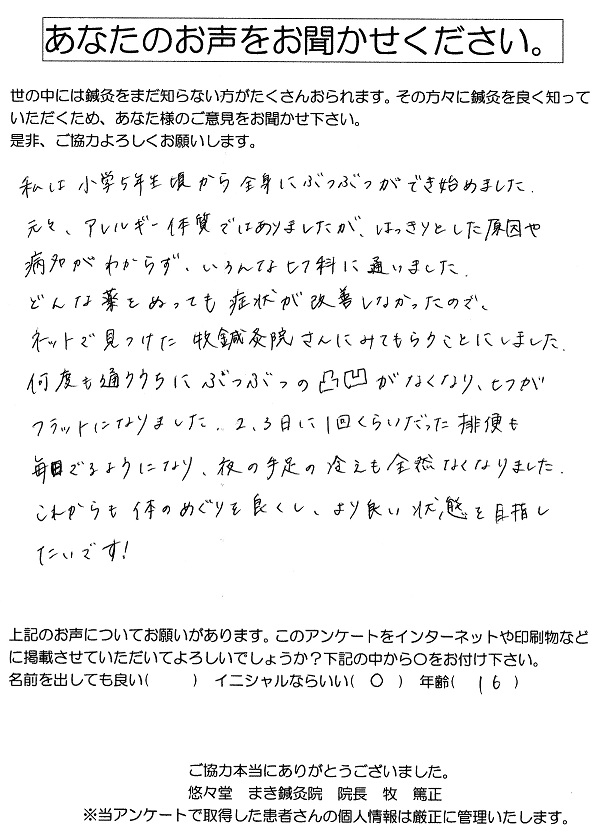 あなたのお声をお聞かせください。
世の中には鍼灸をまだ知らない方がたくさんおられます。その方々に鍼灸を良く知って
いただくため、あなた様のご意見をお聞かせ下さい。
是非、ご協力よろしくお願いします。
私は小学5年生頃から全身にぶつぶつができ始めました。
元々、アレルギー体質ではありましたが、はっきりとした原因や
病名がわからず、いろんなヒフ科に通いました。
どんな薬をぬっても症状が改善しなかったので、
ネットで見つけた牧鍼灸院さんにみてもらうことにしました。
何度も通ううちにぶつぶつの凸凹がなくなり、ヒフが
フラットになりました。2、3日に1回くらいだった排便も
毎日でるようになり、夜の手足の冷えも全然なくなりました。
これからも体のめぐりを良くし、より良い状態を目指し
たいです!
上記のお声についてお願いがあります。このアンケートをインターネットや印刷物など
に掲載させていただいてよろしいでしょうか?下記の中から○をお付け下さい。
名前を出しても良い( ) イニシャルならいい( ○ ) 年齢( 16 )
ご協力本当にありがとうございました。
悠々堂 まき鍼灸院 院長 牧 篤正
※当アンケートで取得した患者さんの個人情報は厳正に管理いたします。